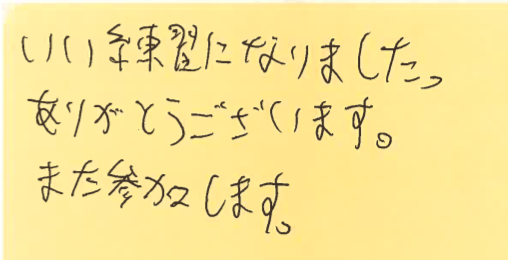 いい練習になりました。
ありがとうございます。
また参加します。